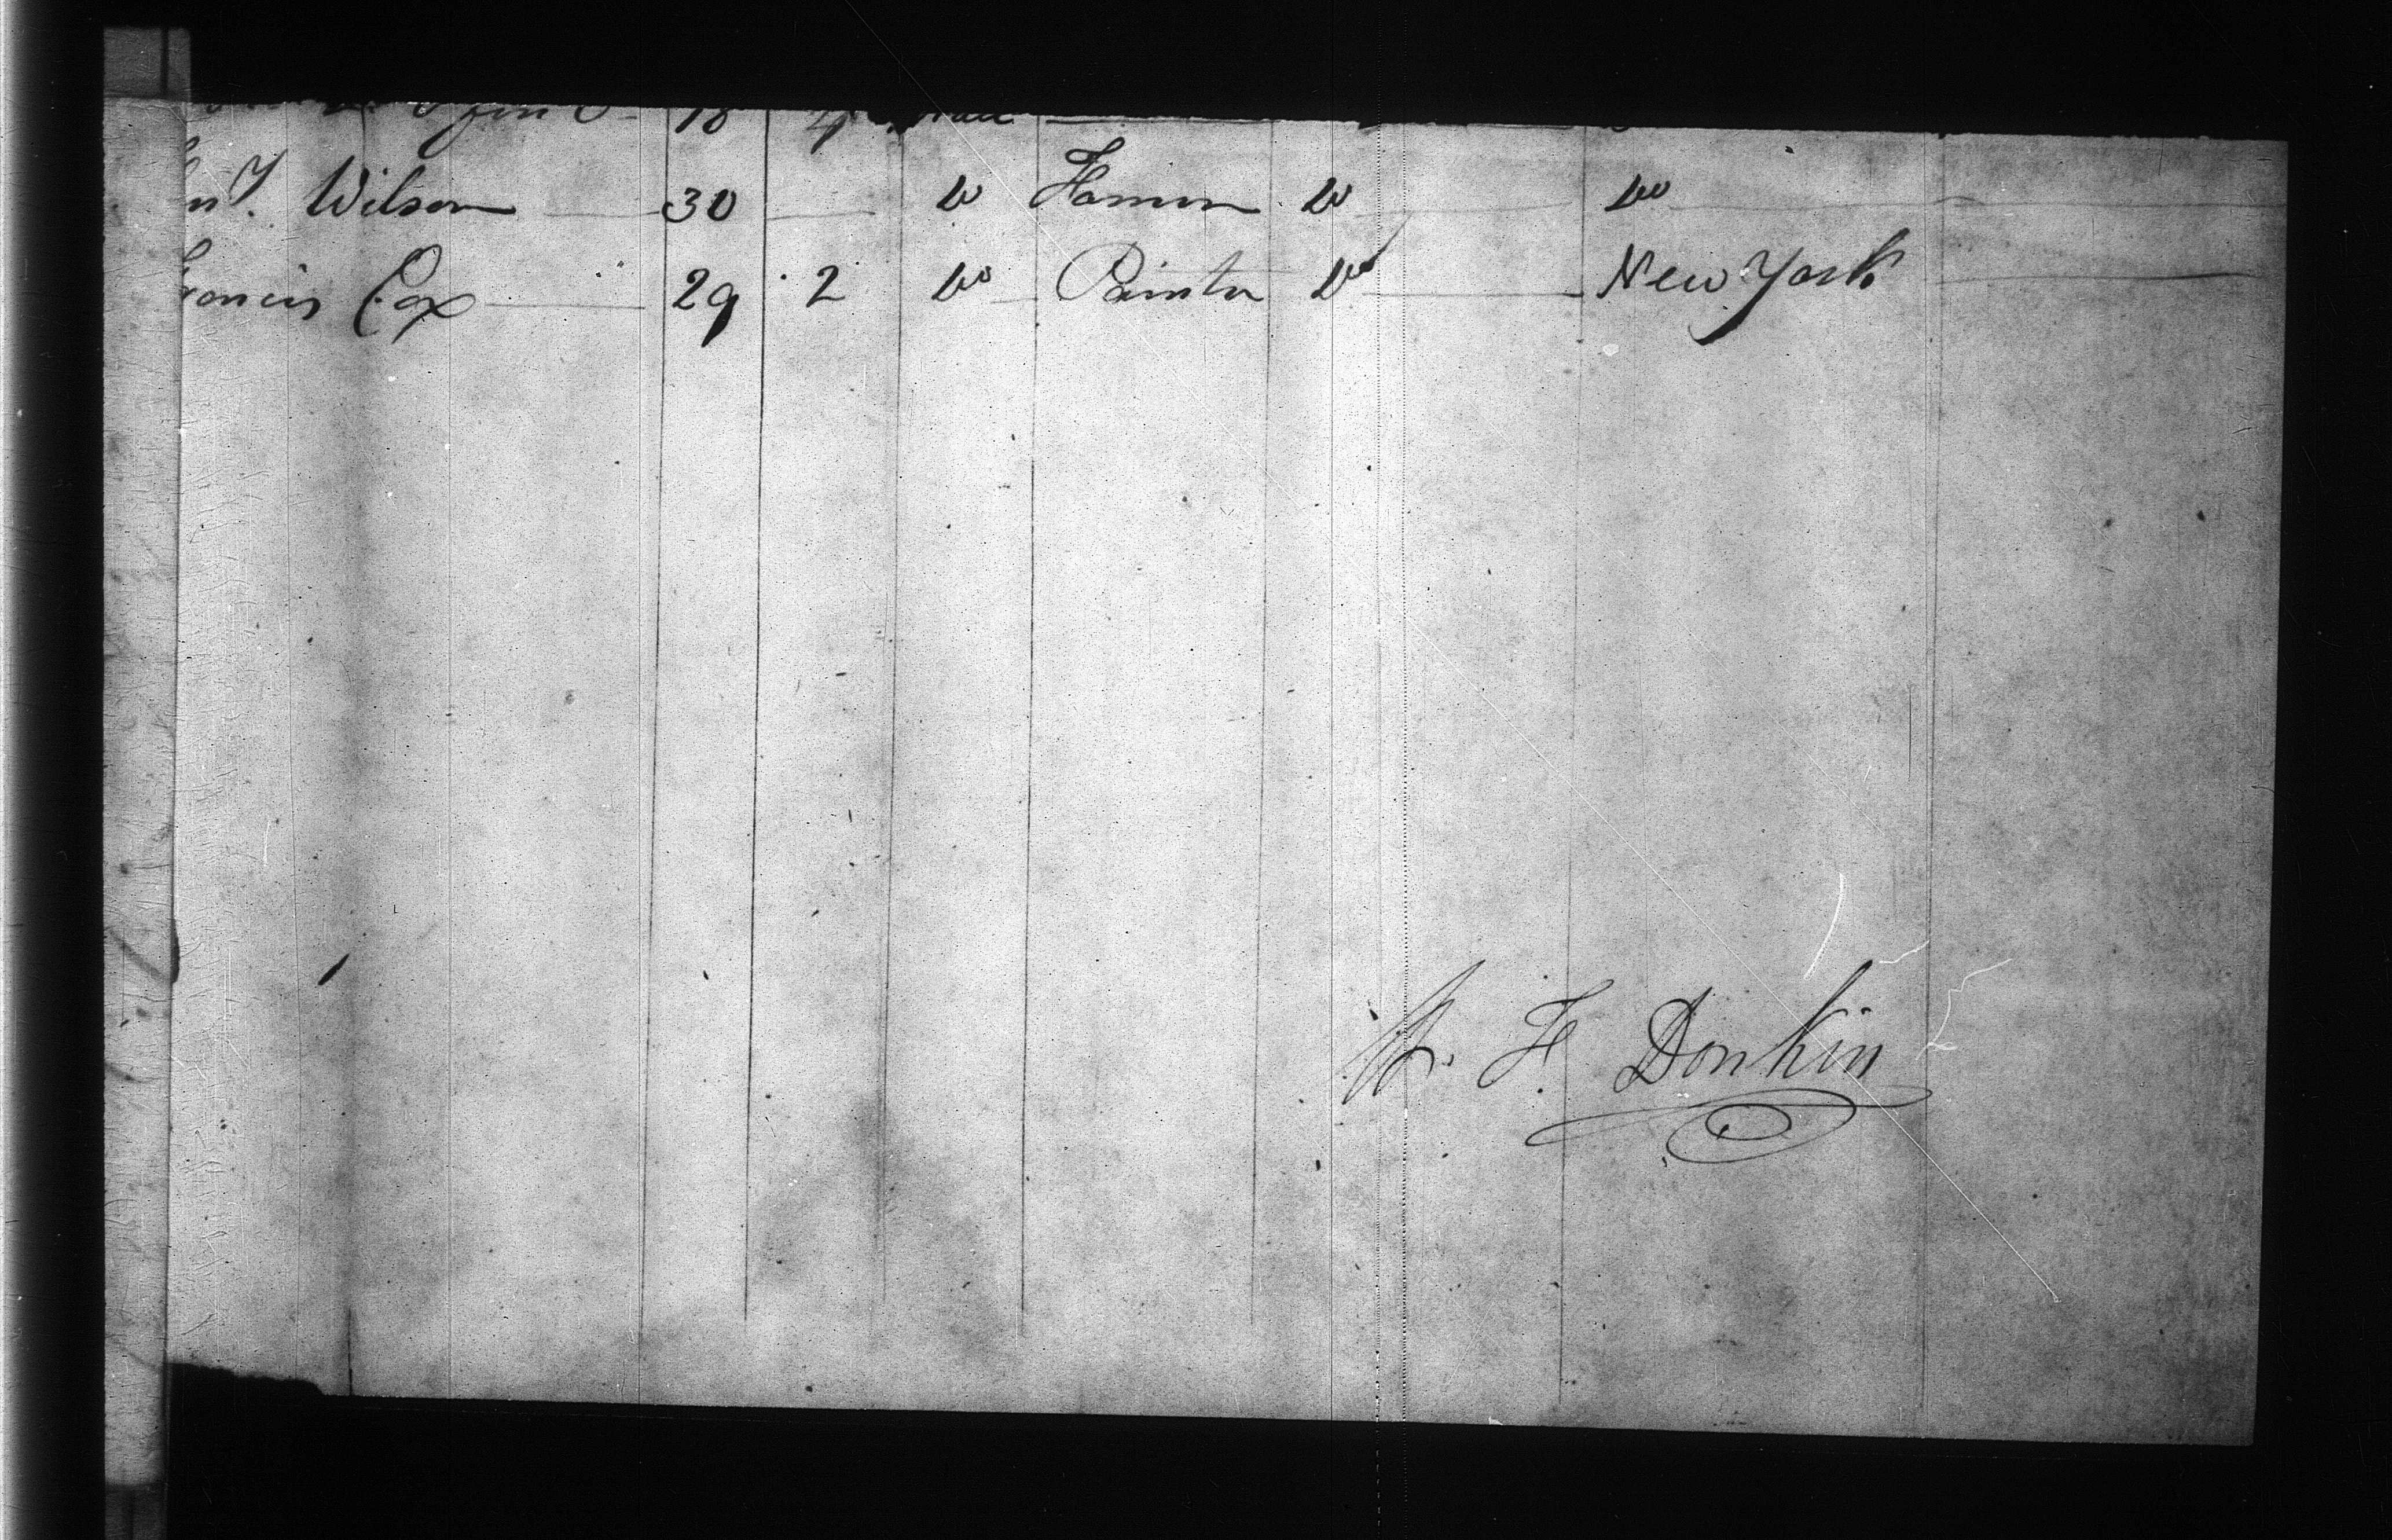 18 4
Wilson 30 Do Farmer Do Do
Francis Cox 29 2 Do Painter Do New York
W. F. Donkin